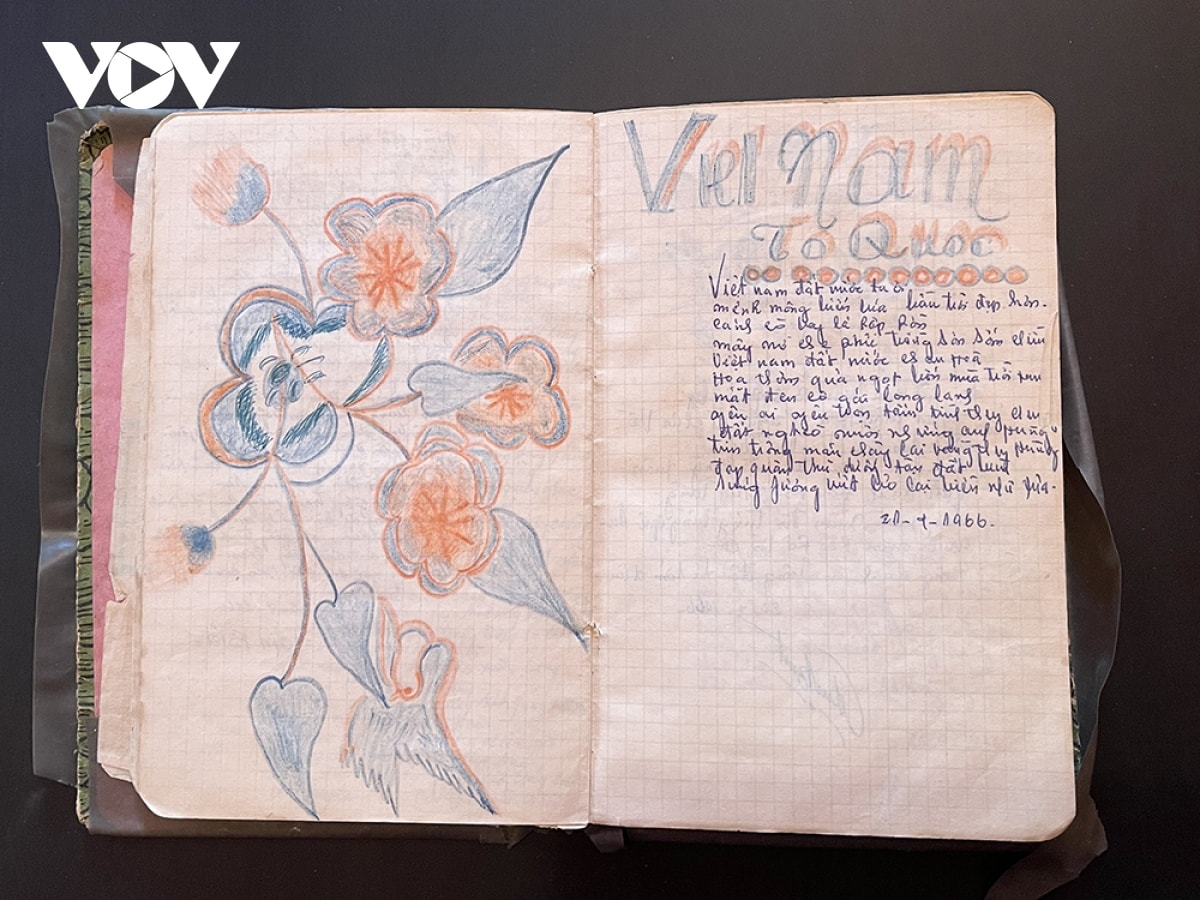 VOV
Việt Nam
Tổ Quốc
Việt nam đất nước ta ơi
mênh mông biển lúa đâu trời đẹp hơn.
cánh cò bay lả rập rờn
mây mờ che phủ trường Sơn Sớm chiều
Việt nam đất nước
Hoa thơm quả ngọt bốn mùa trời xanh
mắt đen cô gái long lanh
yêu ai yêu trọn tấm tình thuỷ chung
đất nghèo nuôi những anh hùng
chìm trong máu chảy lại vùng
đạp quân thù đất đen
Súng gươm vứt bỏ lại hiền như xưa.
1966.